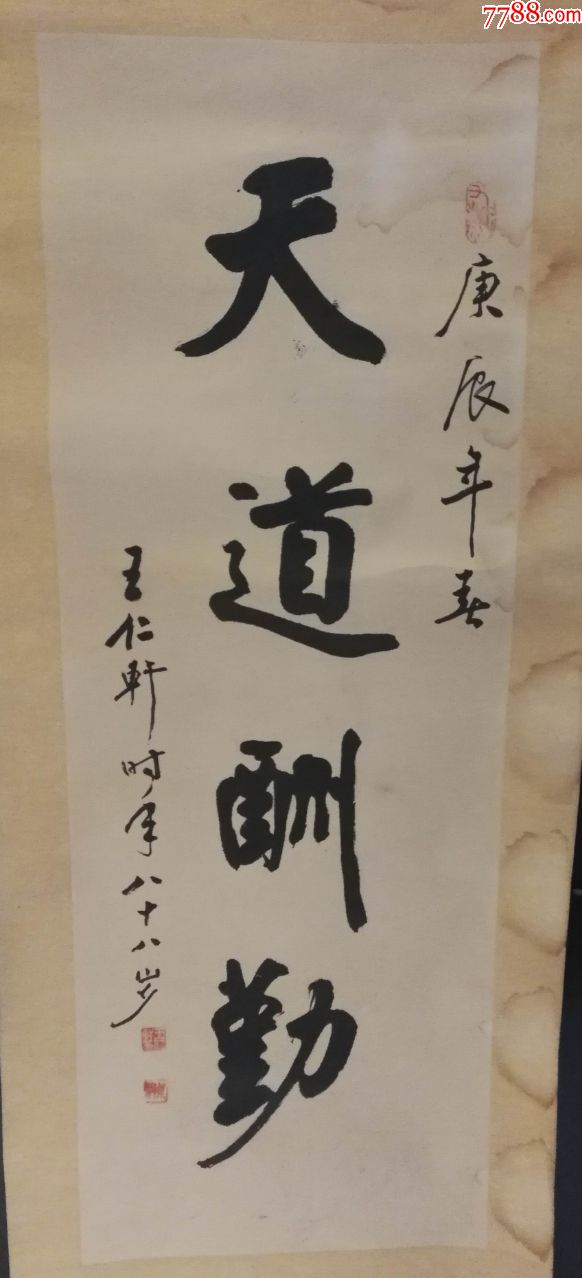 7788.com
庚辰年春
天道酬勤
王仁轩时年八十八岁